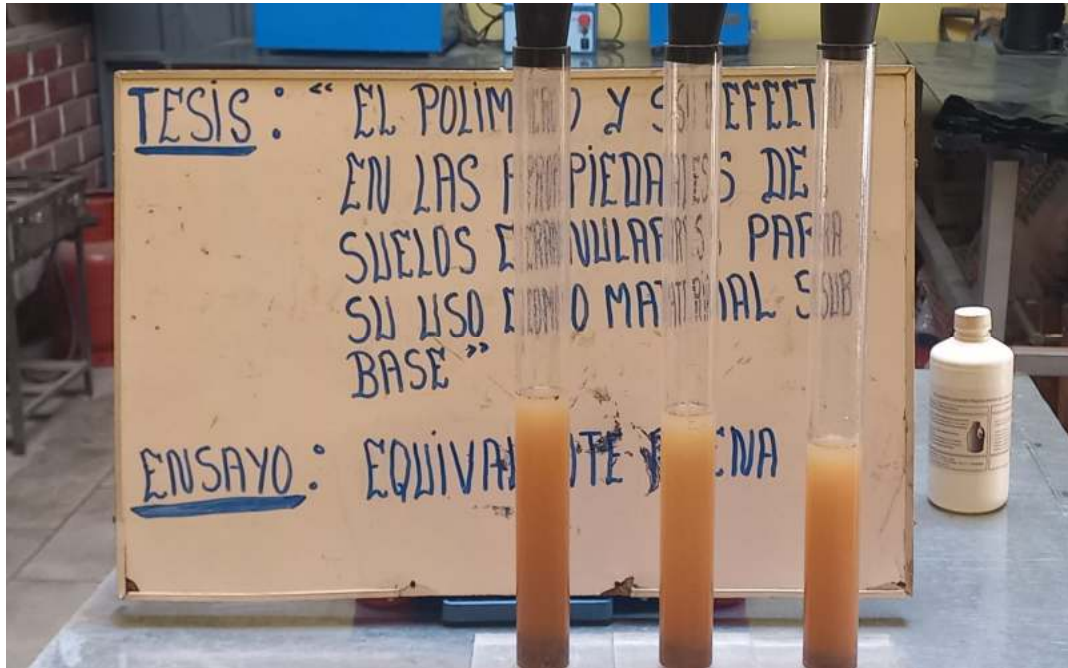 TESIS: “ EL POLIMERO Y SU EFECTO
EN LAS PROPIEDADES DE
SUELOS GRANULARES PARA
SU USO COMO MATERIAL SUB
BASE ”
ENSAYO: EQUIVALENTE ARENA